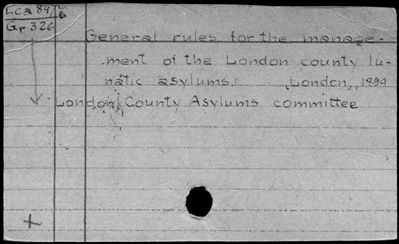 Lca 84/6
Gr 326
General rules for the manage-
ment of the London county lu-
natic asylums. London, 1890
London County Asylums committee
+